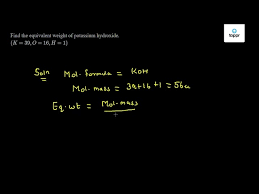 Find the equivalent weight of potassium hydroxide.
(K = 39, O = 16, H = 1)
toppr
Soln Mol-formula = KOH
Mol-mass = 39+16+1 = 56u
Eq.wt = Mol-mass